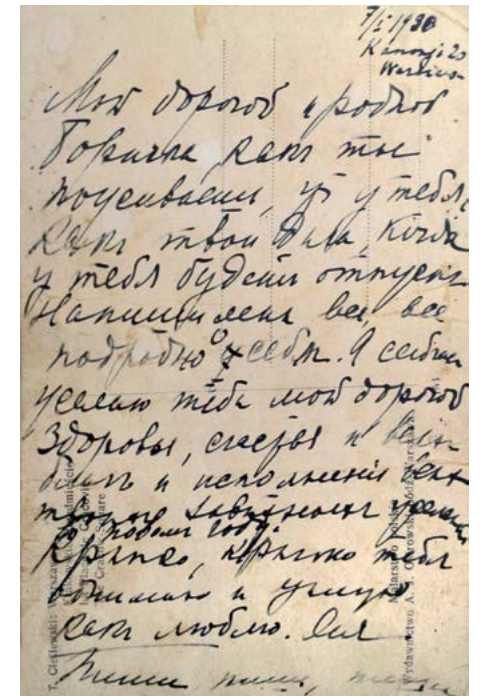 7/I 1930
Kanonja 20
Warszawa
Мой дорогой и родной
Боричка, какъ ты
поживаешь, у тебя,
какъ твои дела, когда
у тебя будетъ отпускъ
Напиши мне все, все
подробно о себѣ. Я сейчас
желаю тебѣ мой дорогой
Здоровья, счастья и
благъ и исполненія всехъ
твоихъ завѣтныхъ
въ новомъ году.
Крепко, крепко тебя
обнимаю и целую
какъ люблю.
Пиши пиши,
T. Cieślewski: Warszawa
Malarstwo Polskie
Wydawnictwo A. J. Ostrowski Łódź Warszawa